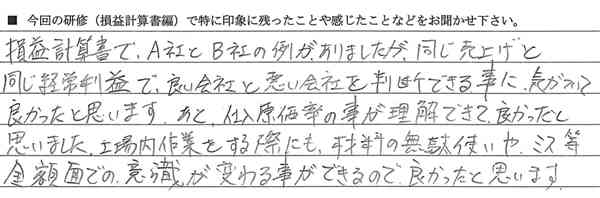 ■ 今回の研修（損益計算書編）で特に印象に残ったことや感じたことなどをお聞かせ下さい。
損益計算書で、A社とB社の例がありましたが、同じ売上げと
同じ経常利益で、良い会社と悪い会社を判断できる事に、気がついて
良かったと思います。あと、仕入原価率の事が理解できて、良かったと
思いました。工場内作業をする際にも、材料の無駄使いや、ミス等
金額面での、意識が変わる事ができるので、良かったと思います。